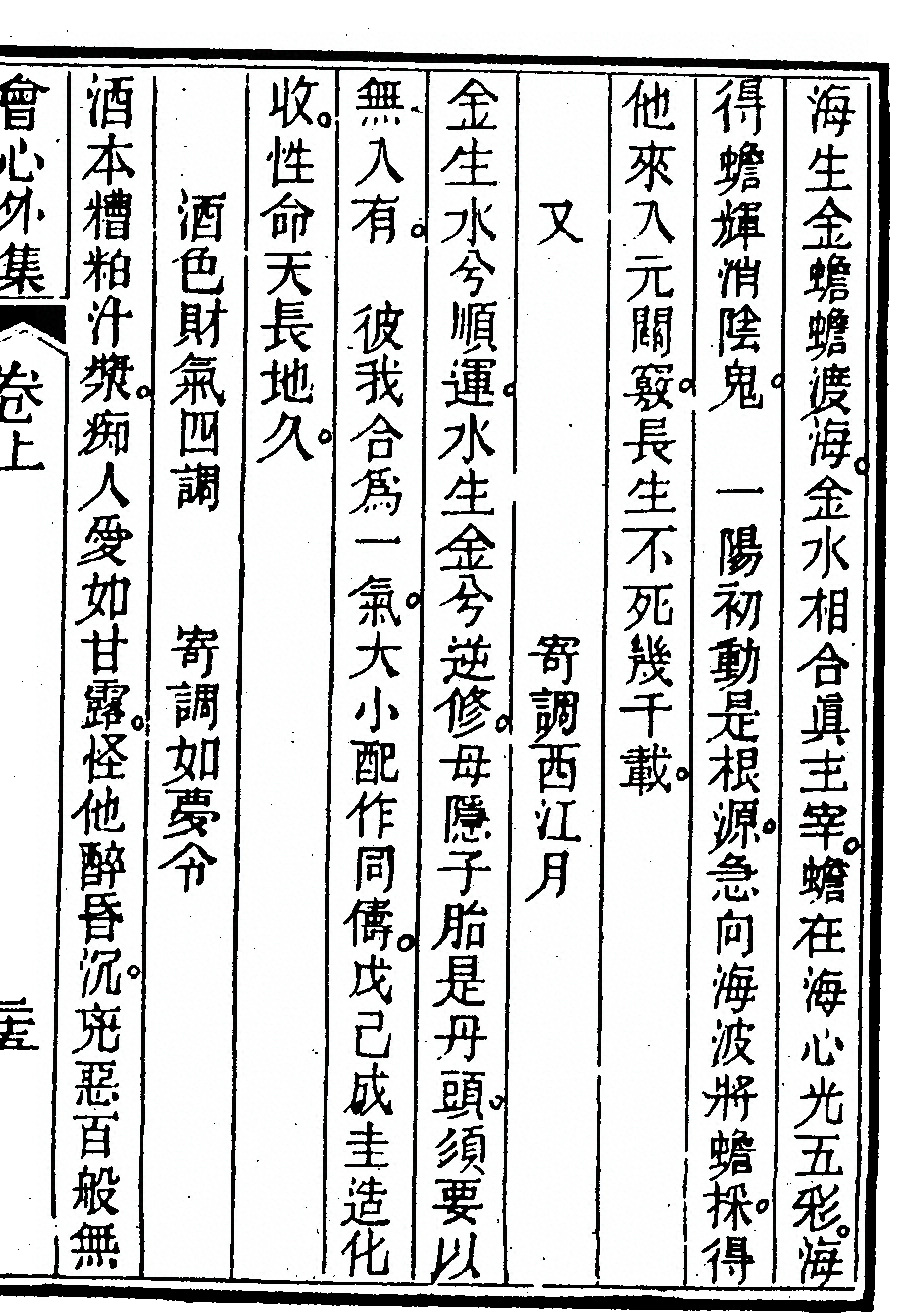 海生金蟾蟾渡海。金水相合眞主宰。蟾在海心光五彩。海
得蟾輝消陰鬼。　一陽初動是根源。急向海波將蟾採。得
他來入元關竅。長生不死幾千載。
又　寄調西江月
金生水兮順運。水生金兮逆修。母隱子胎是丹頭。須要以
無入有。　彼我合爲一氣。大小配作同儔。戊己成圭造化
收。性命天長地久。
酒色財氣四調　寄調如夢令
酒本糟粕汁漿。痴人愛如甘露。怪他醉昏沉。兇惡百般無
會心外集　卷上